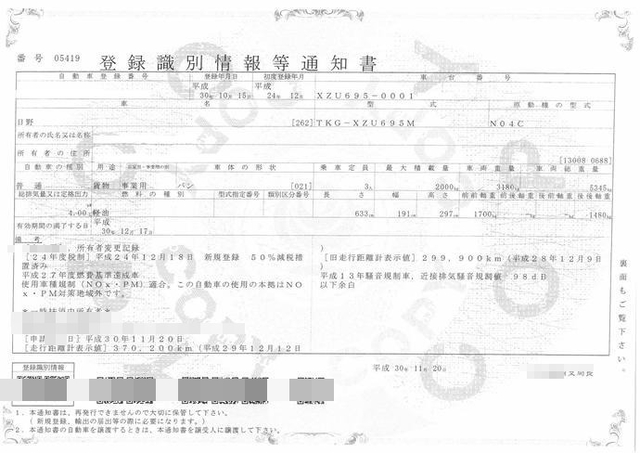 番号 05419
登録識別情報等通知書
自動車登録番号 登録年月日 初度登録年月 車台番号
平成 平成
30年 10月 15日 24年 12月 XZU695-0001
車名 型式 原動機の型式
日野 [262] TKG-XZU695M N04C
所有者の氏名又は名称
所有者の住所
[13008 0688]
自動車の種別 用途 自家用・事業用の別 車体の形状 乗車定員 最大積載量 車両重量 車両総重量
普通 貨物 事業用 バン [021] 3人 2000kg 3180kg 5345kg
総排気量又は定格出力 燃料の種類 型式指定番号 類別区分番号 長さ 幅 高さ 前前軸重 前後軸重 後前軸重 後後軸重
4.00 軽油 633cm 191cm 297cm 1700kg -kg -kg 1480kg
有効期間の満了する日
平成
30年 12月 17日
備考
, 所有者変更記録
[24年度税制] 平成24年12月18日 新規登録 50%減税措置済み
平成27年度燃費基準達成車
使用車種規制(NOx・PM)適合, この自動車の使用の本拠はNOx・PM対策地域外です。
[旧走行距離計表示値] 299,900km(平成28年12月9日)
平成13年騒音規制車, 近接排気騒音規制値 98dB
以下余白
日] 平成30年11月20日
[走行距離計表示値] 370,200km(平成29年12月12
裏面もご覧下さい。
登録識別情報
平成 30年 11月 20日
支局長
1. 本通知書は、再発行できませんので大切に保管して下さい。
(新規登録、輸出の届出等の際に必要になります。)
2. 本通知書の自動車を譲渡するときは、本通知書を譲受人に譲渡して下さい。
COPY